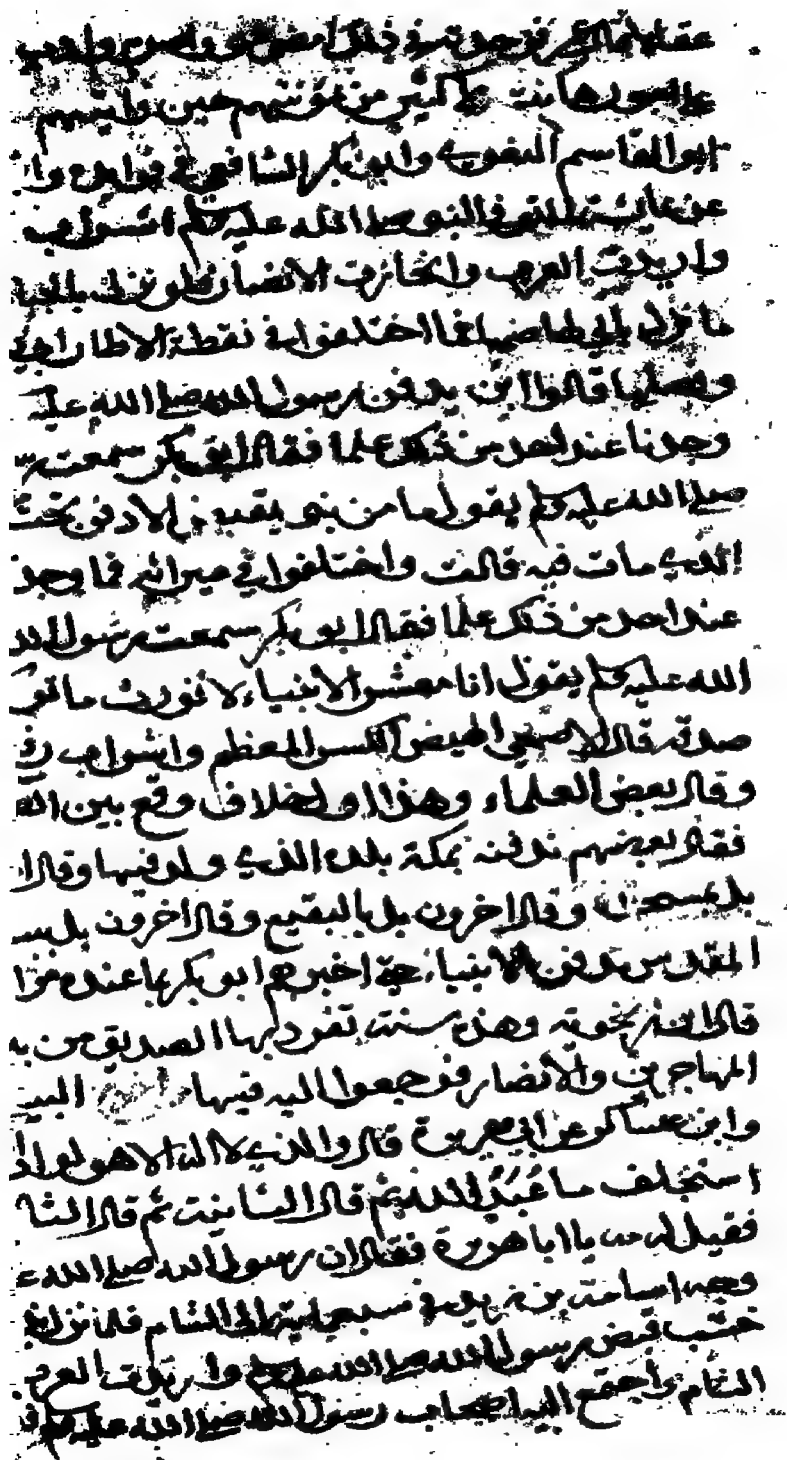 عقلا لأمانا لكم فوجدته في ذلك امضى مني واصرم وادب
على امور هانت على كثير من مؤنتهم حين وليتهم
ابو القاسم البغوي وابو بكر الشافعي في فوائده وا
عن عائشة قالت توفي النبي صلى الله عليه وسلم اشراب
وارتدت العرب وانحازت الانصار فلو نزل بالجبا
ما نزل بابي لهاضها فما اختلفوا في نقطة الا طار ابي
وفصلها قالوا اين يدفن رسول الله صلى الله عليه
وجدنا عند احد من ذلك علما فقال ابو بكر سمعت رس
صلى الله عليه وسلم يقول ما من نبي يقبض الا دفن تحت
الذي مات فيه قالت واختلفوا في ميراثه فما وجد
عند احد من ذلك علما فقال ابو بكر سمعت رسول الله
الله عليه وسلم يقول انا معشر الانبياء لا نورث ما تر
صدقة قال الاصمعي الهيض الكسر المعظم واشراب رف
وقال بعض العلماء وهذا اول خلاف وقع بين الص
فقال بعضهم ندفنه بمكة بلده الذي ولد فيها وقال ا
بل بمسجده وقال اخرون بل بالبقيع وقال اخرون بل ببي
المقدس مدفن الانبياء حتى اخبرهم ابو بكر بما عنده من ا
قال ابن زنجويه وهذه سنة تفرد بها الصديق من بي
المهاجرين والانصار فرجعوا اليه فيها البيـ
وابن عساكر عن ابي هريرة قال والذي لا اله الا هو لولا ا
استخلف ما عُبِدَ الله ثم قال الثانية ثم قال الثا
فقيل له مه يا ابا هريرة فقال ان رسول الله صلى الله ع
وجه اسامة بن زيد في سبعماية الى الشام فلما نزل بذ
خشب قبض رسول الله صلى الله عليه وسلم وارتدت العرب
الشام واجتمع اليه اصحاب رسول الله صلى الله عليه وسلم ف